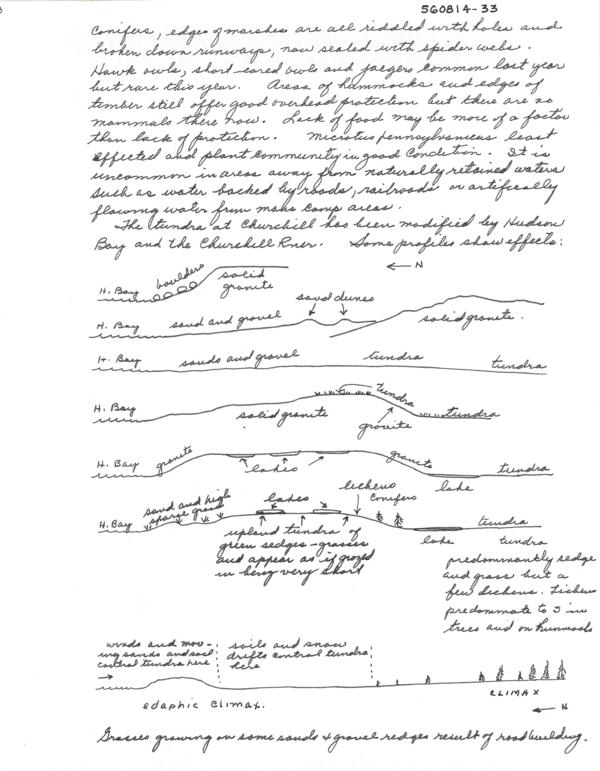 560814-33
Conifers, edges of marshes are all riddled with holes and
broken down runways, now sealed with spider webs.
Hawk owls, short-eared owls and jaegers common last year
but rare this year. Areas of hummocks and edges of
timber still offer good overhead protection but there are no
mammals there now. Lack of food may be more of a factor
than lack of protection. Microtus pennsylvanicus least
affected and plant community in good condition. It is
uncommon in areas away from naturally retained waters
such as water backed by roads, railroads or artificially
flowing water from mans camp areas.
The tundra at Churchill has been modified by Hudson
Bay and the Churchill River. Some profiles show effects:
← N
H. Bay boulders solid
granite
sand dunes
H. Bay sand and gravel solid granite.
H. Bay sands and gravel tundra tundra
H. Bay solid granite tundra tundra
granite
H. Bay granite lakes granite lake tundra
H. Bay sand and high
sparse grass
lakes lichens
conifers
lake tundra
upland tundra of
green sedges - grasses
and appear as if grazed
in being very short
tundra
predominantly sedge
and grass but a
few lichens. Lichens
predominate to 5 in
trees and on hummocks
winds and mov-
ing sands and soil
control tundra here
soils and snow
drifts control tundra
here
edaphic climax.
CLIMAX
← N
Grasses growing on some sands & gravel ridges result of road building.